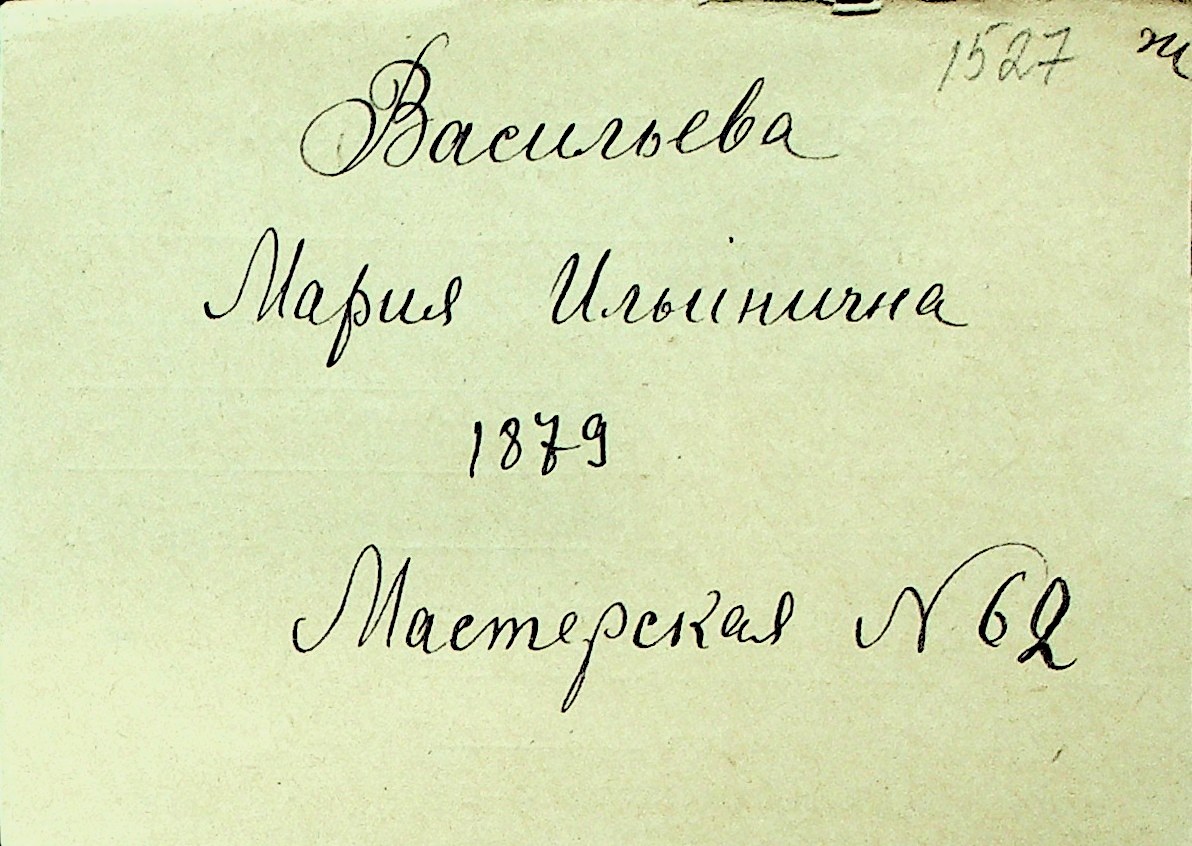 1527
Васильева
Мария Ильинична
1879
Мастерская N 62